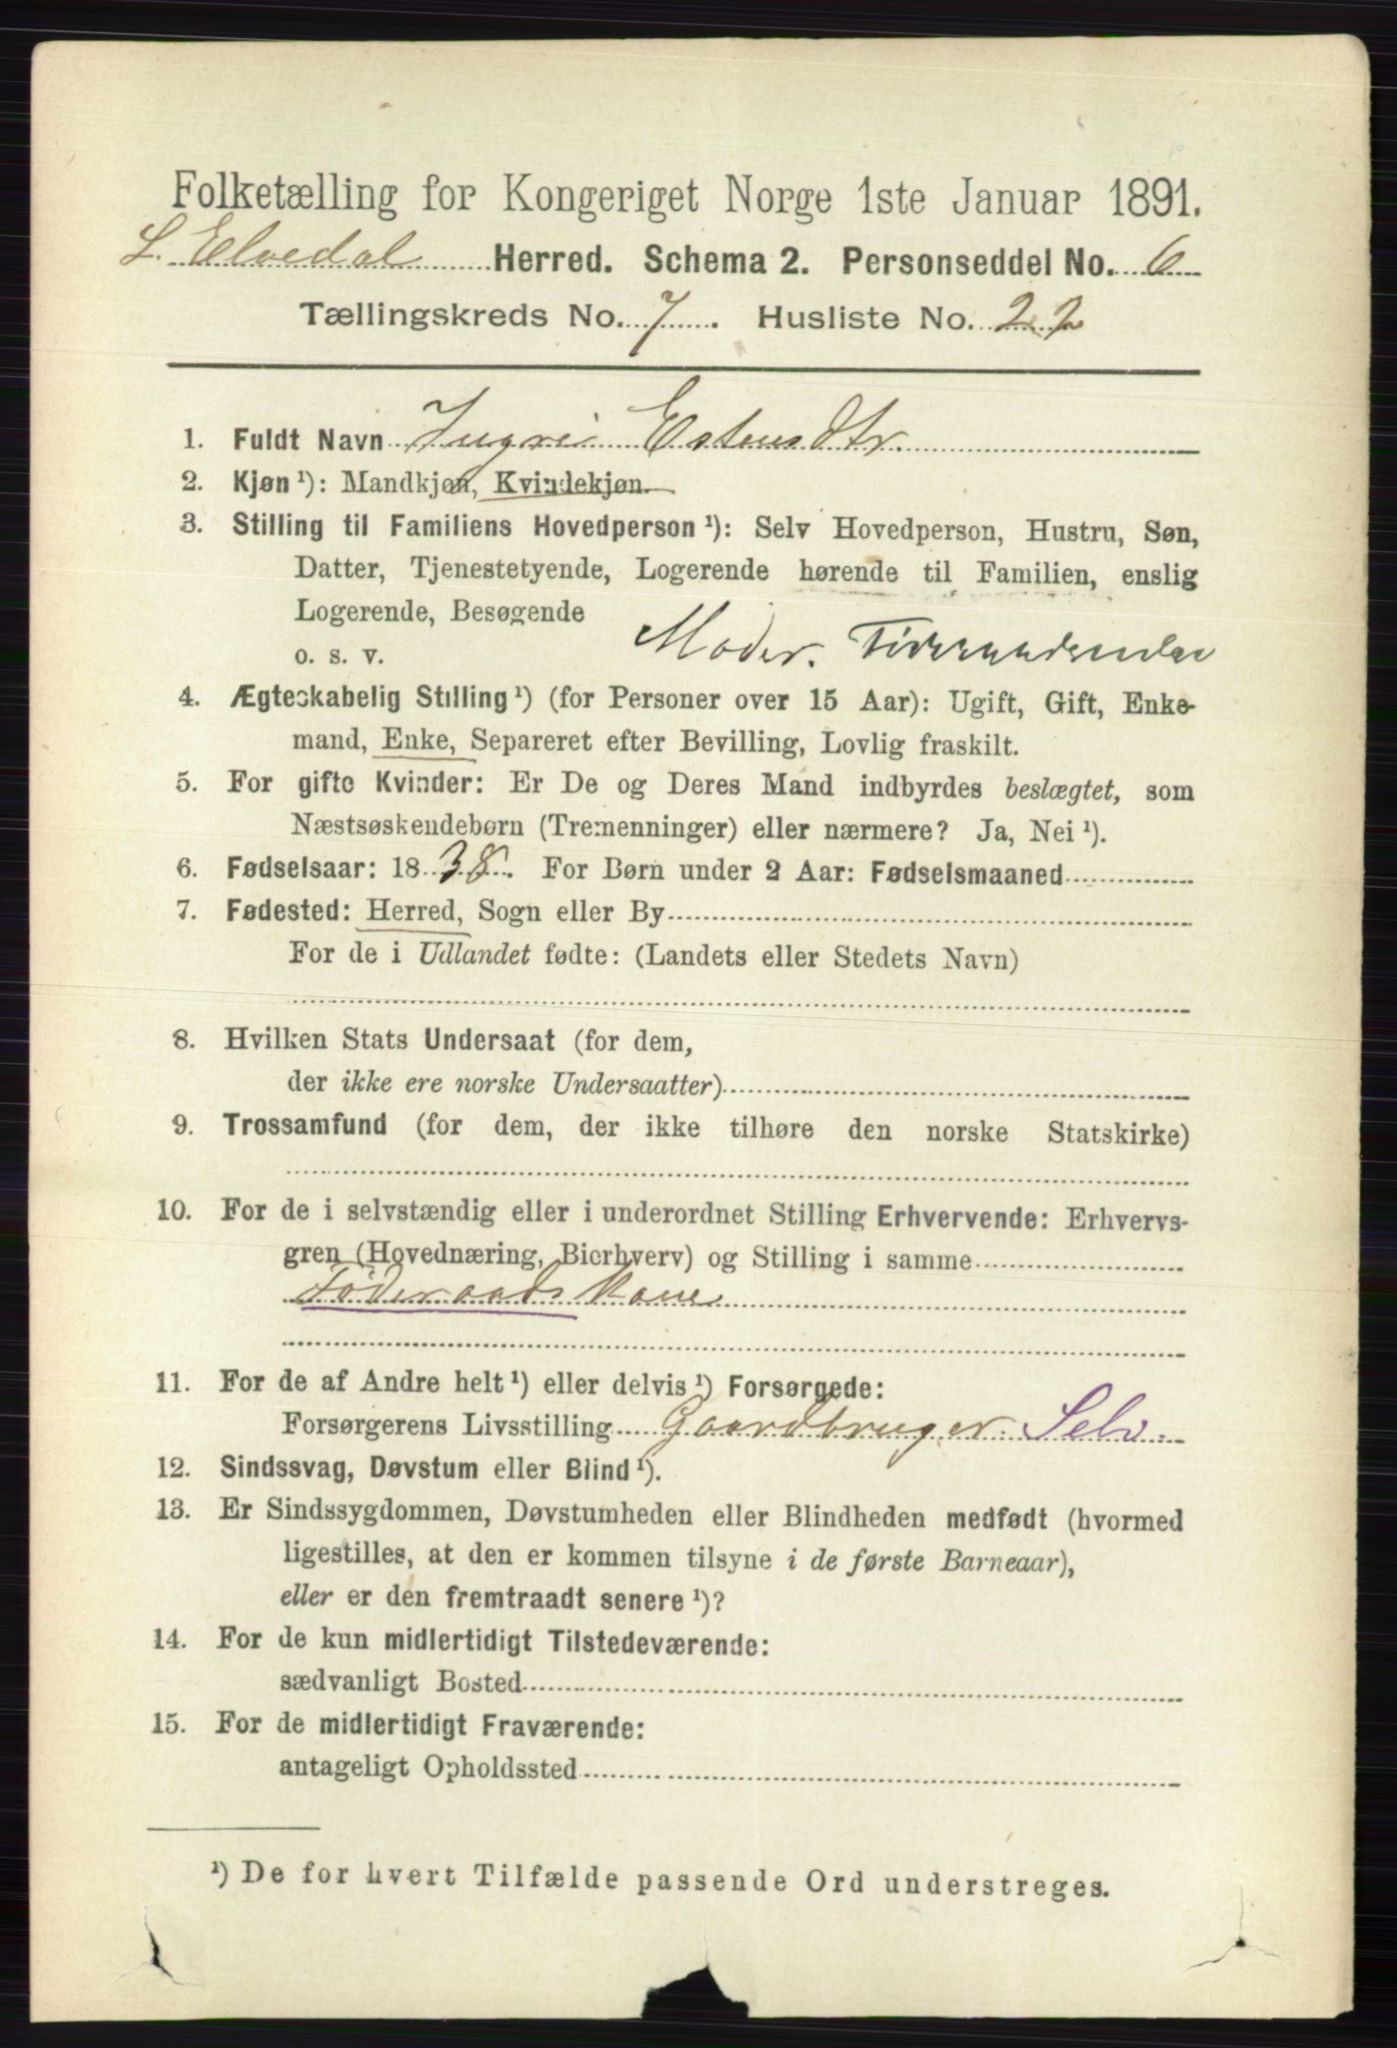 Folketælling for Kongeriget Norge 1ste Januar 1891.
L. Elvedal Herred. Schema 2. Personseddel No. 6
Tællingskreds No. 7. Husliste No. 22
1. Fuldt Navn Ingri Estensdtr.
2. Kjøn ¹): Mandkjøn, Kvindekjøn.
3. Stilling til Familiens Hovedperson ¹): Selv Hovedperson, Hustru, Søn,
Datter, Tjenestetyende, Logerende hørende til Familien, enslig
Logerende, Besøgende
o. s. v. Moder.
4. Ægteskabelig Stilling ¹) (for Personer over 15 Aar): Ugift, Gift, Enke-
mand, Enke, Separeret efter Bevilling, Lovlig fraskilt.
5. For gifte Kvinder: Er De og Deres Mand indbyrdes beslægtet, som
Næstsøskendebørn (Tremenninger) eller nærmere? Ja, Nei ¹).
6. Fødselsaar: 1838. For Børn under 2 Aar: Fødselsmaaned
7. Fødested: Herred, Sogn eller By
For de i Udlandet fødte: (Landets eller Stedets Navn)
8. Hvilken Stats Undersaat (for dem,
der ikke ere norske Undersaatter)
9. Trossamfund (for dem, der ikke tilhøre den norske Statskirke)
10. For de i selvstændig eller i underordnet Stilling Erhvervende: Erhvervs-
gren (Hovednæring, Bierhverv) og Stilling i samme
Føderaadskone
11. For de af Andre helt ¹) eller delvis ¹) Forsørgede:
Forsørgerens Livsstilling Gaardbruger. Selv.
12. Sindssvag, Døvstum eller Blind ¹).
13. Er Sindssygdommen, Døvstumheden eller Blindheden medfødt (hvormed
ligestilles, at den er kommen tilsyne i de første Barneaar),
eller er den fremtraadt senere ¹)?
14. For de kun midlertidigt Tilstedeværende:
sædvanligt Bosted
15. For de midlertidigt Fraværende:
antageligt Opholdssted
¹) De for hvert Tilfælde passende Ord understreges.